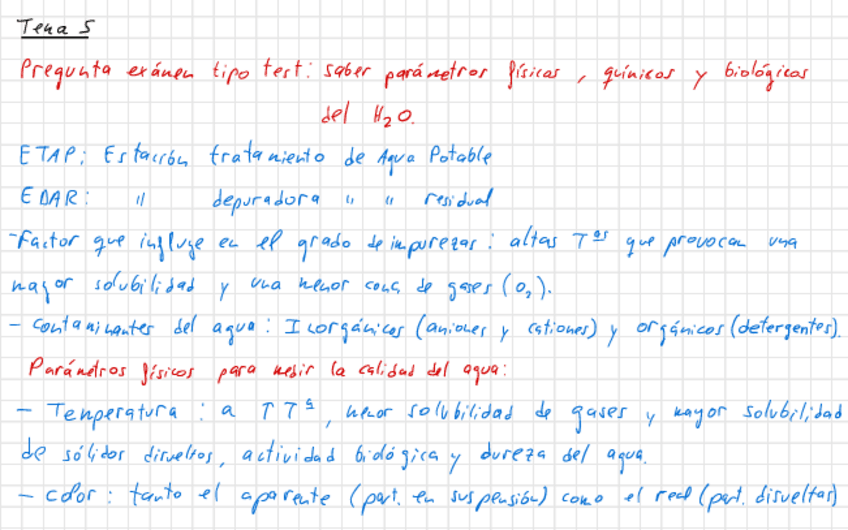 Tema 5
Pregunta exámen tipo test: saber parámetros físicas, químicos y biológicos
del H₂O.
ETAP: Estación tratamiento de Agua Potable
EDAR: " depuradora " " residual
-Factor que influye en el grado de impurezas: altas Tᵃˢ que provocan una
mayor solubilidad y una menor conc de gases (O₂).
- contaminantes del agua: Inorgánicos (aniones y cationes) y orgánicos (detergentes).
Parámetros físicos para medir la calidad del agua:
- Temperatura: a ↑Tᵃ, menor solubilidad de gases y mayor solubilidad
de sólidos disueltos, actividad biológica y dureza del agua.
- color: tanto el aparente (part. en suspensión) como el real (part. disueltas)